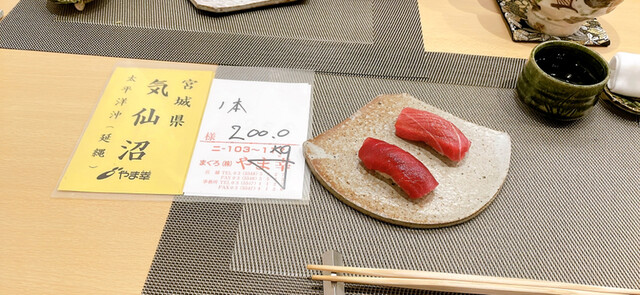 宮城県
気仙沼
太平洋沖(延縄)
やま幸
1本
様 200.0
ニ-103~1
まぐろ(株) やま幸